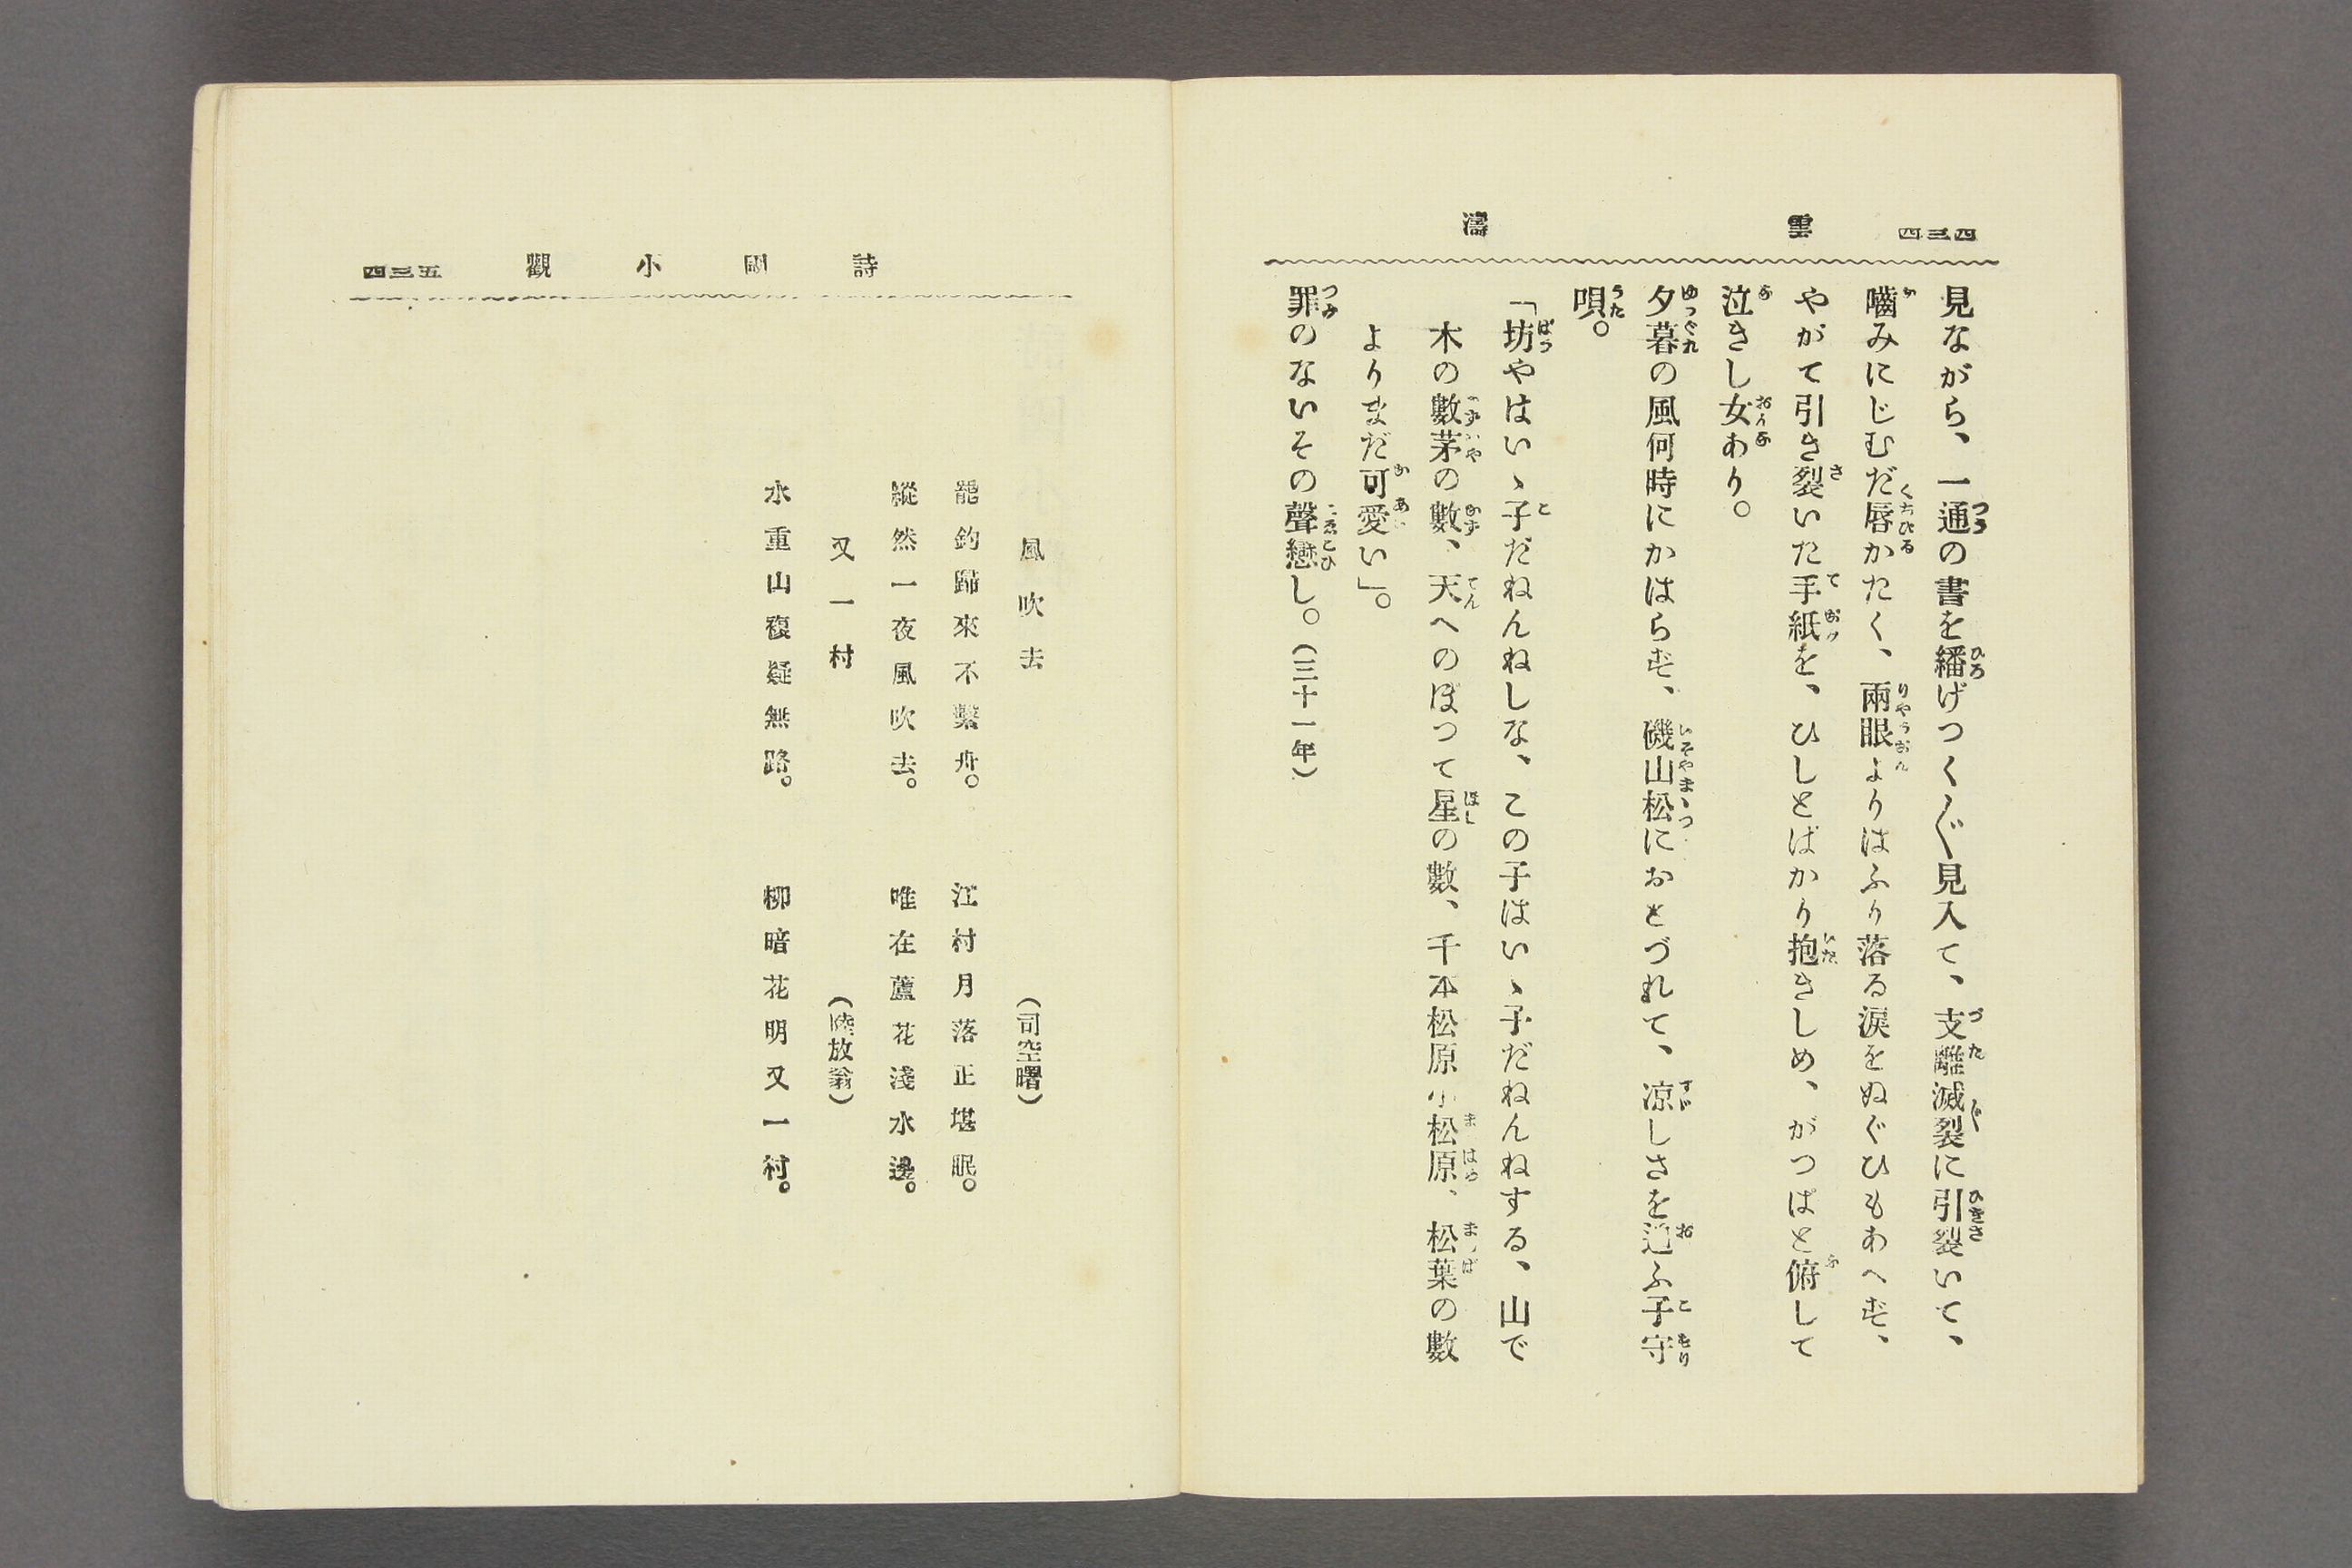 四三四 雲濤
見ながら、一通の書を繙げつく〲見入て、支離滅裂に引裂いて、
嚙みにじむだ唇かたく、兩眼よりはふり落る淚をぬぐひもあへず、
やがて引き裂いた手紙を、ひしとばかり抱きしめ、がつぱと俯して
泣きし女あり。
夕暮の風何時にかはらず、磯山松におとづれて、凉しさを追ふ子守
唄。
「坊やはいゝ子だねんねしな、この子はいゝ子だねんねする、山で
木の數茅の數、天へのぼつて星の數、千本松原小松原、松葉の數
よりまだ可愛い」。
罪のないその聲戀し。(三十一年)
詩國小觀 四三五
風吹去 (司空曙)
罷釣歸來不繫舟。 江村月落正堪眠。
縱然一夜風吹去。 唯在蘆花淺水邊。
又一村 (陸放翁)
水重山複疑無路。 柳暗花明又一村。